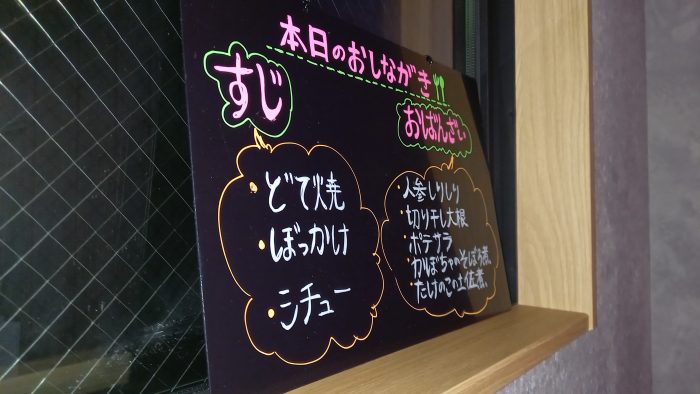 本日のおしながき
すじ
・どて焼
・ぼっかけ
・シチュー
おばんざい
・人参しりしり
・切り干し大根
・ポテサラ
・かぼちゃのそぼろ煮
・たけのこの土佐煮